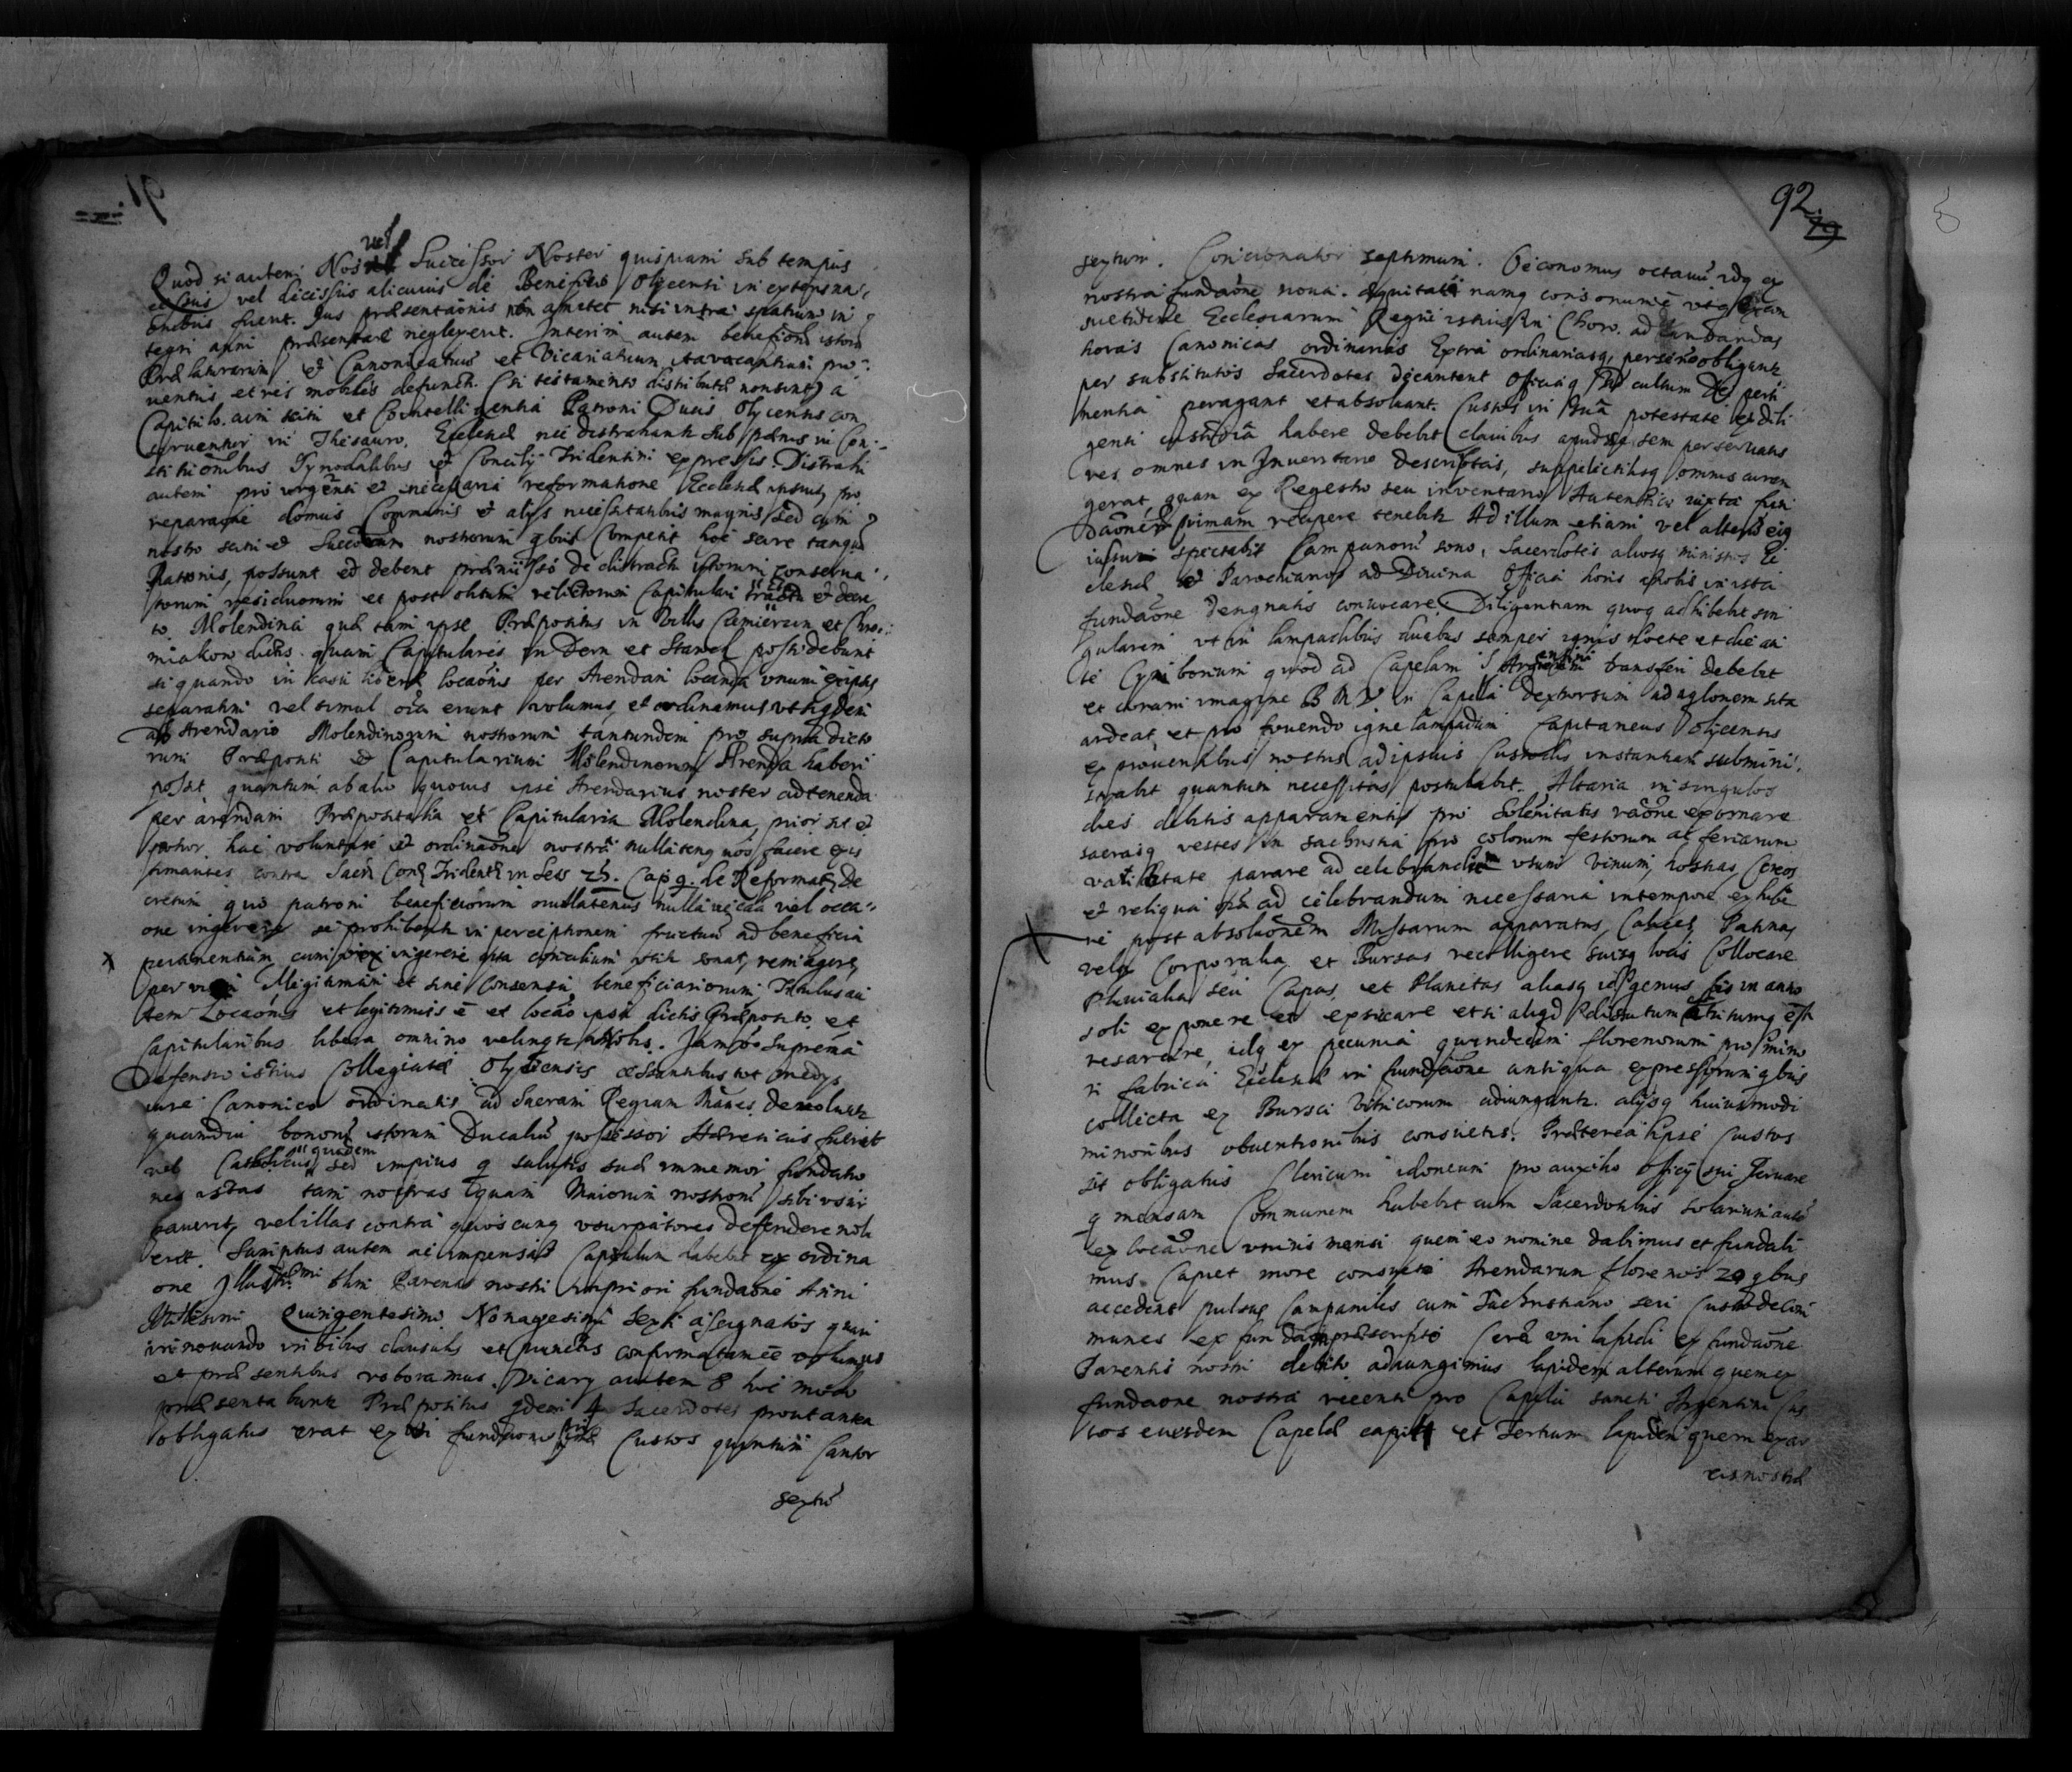 91.
Quod si autem Nos vel Successor Noster quispiam sub tempus
vel decessus alicuius de Beneficio Olycensi in extans na
fuerit. Jus præsentaōnis nōn amittet nisi intra spatium in
tegri anni præsentare neglexerit. Interim autem beneficiorū istorū
Prælaturarum et Canonicatuū et Vicariatuum ita vacantium pro
ventus et res mobiles defuncti (si testamento distributæ non sint) a
Capitulo cum scitu et Cointelligentia Patroni Ducis Olycensis con
serventur in Thesauro Ecclesiæ nec distrahantr sub pœnis in Con
stitutionibus Synodalibus et Concilij Tridentini expressis. Distrahi
autem pro urgenti et necessaria reformatione Ecclesiæ ipsius, pro
reparaōne domus Communis et alijs necessitatibus magnis, sed cum
nostro scitu et Successorum nostrorum qbus Competit hoc scire tanqm
Patronis, possunt et debent de distractis istorum conserva
torum residuorum et post obitum relictorum Capitulari tractu et decre
to. Molendina quæ tam ipse Præpositus in Villis et Chro
miakow dictis quam Capitulares in Dern et Stawek possidebunt
si quando in casu liberæ locaōnis per Arendam locanda unum eriptis
separatim vel simul oīa erunt volumus, et ordinamus ut siqdem
ab Arendario Molendinorum nostrorum tantundem pro supradicto
rum Præpositi et Capitularium Molendinorum Arenda haberi
possit quantum ab alio quovis ipse Arendarius noster ad tenenda
per arendam Præpositalia et Capitularia Molendina, prior sit et
potior. hac voluntate et ordinaōne nostra nullatenq nos facere exis
timantes contra Sacri Conc. Trident. in Sess 25. Cap 9. de Reformat. De
cretum quo patroni beneficiorum nullatenus nulla ve causa vel occa
one ingerere se prohibentr in perceptionem fructuū ad beneficia
pertinentium, cum vox ingerere ipsa sonat, rem agere,
per viam illegitimam et sine consensu beneficiariorum, Titulus au
tem Locaōnis et legitimus ē et locaō ipsa dictis Præposito et
Capitularibus libera omnino relinqtr . Jam vō Suprema
Defensio istius Collegiatæ Olycensis
iure Canonico ordinatis ad Sacram Regiam Mātēs devolvetr
quamdiu bonorū istorum Ducaliū possessor Hæreticus fuerit
vel Catholicus quidem sed impius q salutis suæ immemor fundatio
nes istas tam nostras quam Maiorum nostrorū sibi usur
paverit, vel illas contra quoscunq usurpatores defendere nolu
erit. Sumptus autem ac impensas Capitulum habebit ex ordina
one Illustrissmi Parentis nostri in priori fundaōne Anni
Millesimi Quingentesimi Nonagesimi Sexti assignatos quam
in nouando in oībus clausulis et punctis confirmatam eē volumus
et præsentibus roboramus. Vicary autem 8 hoc modo
præsentabuntr Præpositus qdem 4 Sacerdotes prout antea
obligatus erat ex vi fundaonis primæ Custos quintum Cantor
sextū
92. 79
sextum. Concionator septimum. Oeconomus octauū idq ex
nostra fundaōne noua. æquitati namq consonum ē utq
suetudine Ecclesiarum Regni istius in Choro ad cantandas
horas Canonicas ordinarias Extra ordinariasq, per se vō obligantr
per substitutos Sacerdotes decantent Officiaq ad cultum Dei perti
nentia peragant et absolvant. Custos in sua potestate et dili
genti custodia habere debebit clavibus apud se semper servatis
res omnes in Inventario descriptas, suppellectilisq omnis curam
gerat, quam ex Regestro seu inventario Autentico iuxta fun
daōnem primam recipere tenebitr Ad illum etiam vel alterū eiq
iussum spectabit Campanarū sono, Sacerdotes aliosq ministros Ec
clesiæ et Parochianos ad Divina Officia horis in ista
fundaōne designatis convocare. Diligentiam quoq adhibebit sin
gularem ut in lampadibus duabus semper ignis nocte et die an
te Cyriborium quod ad Capelam S. Argentini transferri debebit
et coram imagine B M V in Capella dextrorsum ad aqlonem sita
ardeat, et pro fovendo igne lampadum Capitaneus Olicensis
ex proventibus nostris ad ipsius Custodis instantiam submini
strabit quantum necessitas postulabit. Altaria in singulos
dies debitis apparamentis pro Solenitatis raōne exornare
sacrasq vestes in sachristia pro colorum festorum ac feriarum
varietate parare ad celebrandum usum vinum, hostias, Cereos
et reliqua oīa ad celebrandum necessaria in tempore exhibe
re post absoluōnem Missarum apparatus, Calices, Patinas
vela Corporalia et Bursas recolligere suisq locis Collocare
Pluvialia seu Capas, et Planetas aliasq id genus bis in anno
soli exponere et exsiccare et si aliqd dissutum attritumq est
resarcire, idq ex pecunia quindecim florenorum pro
fabrica Ecclesiæ in fundaōne antiqua expressorum qbus
collecta ex Bursa Vitricorum adiungantr alijsq huiusmodi
minoribus obventionibus consuetis. Præterea ipse Custos
sit obligatus Clericum idoneum pro auxilio officij sui servare
q mensam Communem habebit cum Sacerdotibus solarium autē
ex locaōne unius mensi quem eo nomine dabimus et fundabi
mus Capiet more consueto Arendarum florenos 20 qbus
accedent pulsus Campaniles cum Sachristiano seu Custode Com
munes ex fundaōne præscripto Ceræ uni lapidi ex fundaōne
Parentis nostri debito adiungimus lapidem alterum quem ex
fundaone nostra recenti pro Capella sancti Argentini Cus
tos eiusdem Capelæ capiet et Tertium lapidem quem ex ar
cis nostræ